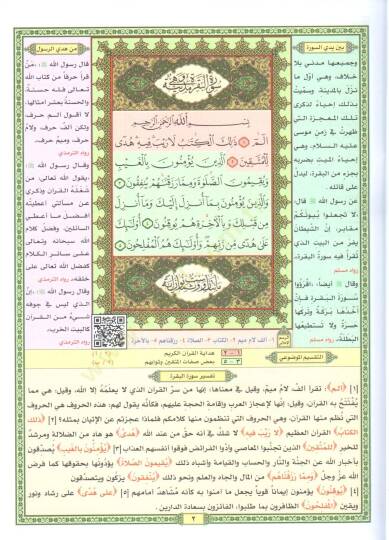 بين يدي السورة
وجميعها مدني بلا
خلاف، وهي أول ما
نزل بالمدينة، وسميت
بذلك إحياءً لذكرى
تلك المعجزة التي
ظهرت في زمن موسى
عليه السلام، وهي
إحياء الميت بضربه
بجزء من البقرة، ليدل
على قاتله.
عن رسول الله ﷺ قال:
«لا تجعلوا بيوتكم
مقابر، إن الشيطان
يفر من البيت الذي
تقرأ فيه سورة البقرة».
رواه مسلم
وقال ﷺ أيضاً: «اقرؤوا
سورة البقرة فإن
أخذها بركة وتركها
حسرة ولا تستطيعها
البطلة». رواه مسلم
سورة البقرة مدنية
بسم الله الرحمن الرحيم
الٓمٓ ١ ذَٰلِكَ ٱلْكِتَٰبُ لَا رَيْبَ فِيهِ هُدًى
لِّلْمُتَّقِينَ ٢ ٱلَّذِينَ يُؤْمِنُونَ بِٱلْغَيْبِ
وَيُقِيمُونَ ٱلصَّلَوٰةَ وَمِمَّا رَزَقْنَٰهُمْ يُنفِقُونَ ٣
وَٱلَّذِينَ يُؤْمِنُونَ بِمَآ أُنزِلَ إِلَيْكَ وَمَآ أُنزِلَ
مِن قَبْلِكَ وَبِٱلْءَاخِرَةِ هُمْ يُوقِنُونَ ٤ أُو۟لَٰٓئِكَ
عَلَىٰ هُدًى مِّن رَّبِّهِمْ وَأُو۟لَٰٓئِكَ هُمُ ٱلْمُفْلِحُونَ ٥
١- ألف لام ميم ٢- الكتاب ٣- الصلاة ٤- رزقناهم ٥- بالآخرة
من هدي الرسول
قال رسول الله ﷺ: «من
قرأ حرفاً من كتاب الله
تعالى فله حسنة،
والحسنة بعشر أمثالها،
لا أقول الم حرف
ولكن ألف حرف، ولام
حرف وميم حرف».
رواه الترمذي
وقال رسول الله ﷺ:
«يقول الله تعالى: من
شغله القرآن وذكري
عن مسألتي أعطيته
أفضل ما أعطي
السائلين، وفضل كلام
الله سبحانه وتعالى
على سائر الكلام
كفضل الله تعالى على
خلقه». رواه الترمذي
وقال رسول الله ﷺ: «إن
الذي ليس في جوفه
شيء من القرآن
كالبيت الخرب».
رواه الترمذي
التقسيم الموضوعي
١-٢ هداية القرآن الكريم
٣-٥ بعض صفات المتقين وثوابهم
تفسير سورة البقرة
[١] ﴿الم﴾: تقرأ ألف لام ميم، وقيل في معناها: إنها من سر القرآن الذي لا يعلمه إلا الله، وقيل: هي مما
يُفتتح به القرآن، وقيل: إنها لإعجاز العرب وإقامة الحجة عليهم، فكأنه يقول لهم: هذه الحروف هي الحروف
التي نظم منها القرآن، وهي الحروف التي تنظمون منها كلامكم فلماذا عجزتم عن الإتيان بمثله؟ [٢] ﴿ذلك
الكتاب﴾ القرآن العظيم ﴿لا ريب فيه﴾ لا شك في أنه حق من عند الله ﴿هدى﴾ هو هاد من الضلالة ومرشد
للخير ﴿للمتقين﴾ الذين تجنبوا المعاصي وأدوا الفرائض فوقوا أنفسهم العذاب [٣] ﴿يؤمنون بالغيب﴾ يصدقون
بأخبار الله عن الجنة والنار والحساب والقيامة وأشباه ذلك ﴿يقيمون الصلاة﴾ يؤدونها بحقوقها كما فرض
الله عز وجل ﴿ومما رزقناهم﴾ من المال والجاه والعلم ونحو ذلك ﴿ينفقون﴾ يزكون ويتصدقون
[٤] ﴿يوقنون﴾ يؤمنون إيماناً قوياً يجعل ما آمنوا به كأنه مُشاهدٌ أمامهم [٥] ﴿على هدى﴾ على رشاد ونور
ويقين ﴿المفلحون﴾ الظافرون بما طلبوا؛ الفائزون بسعادة الدارين.
٢